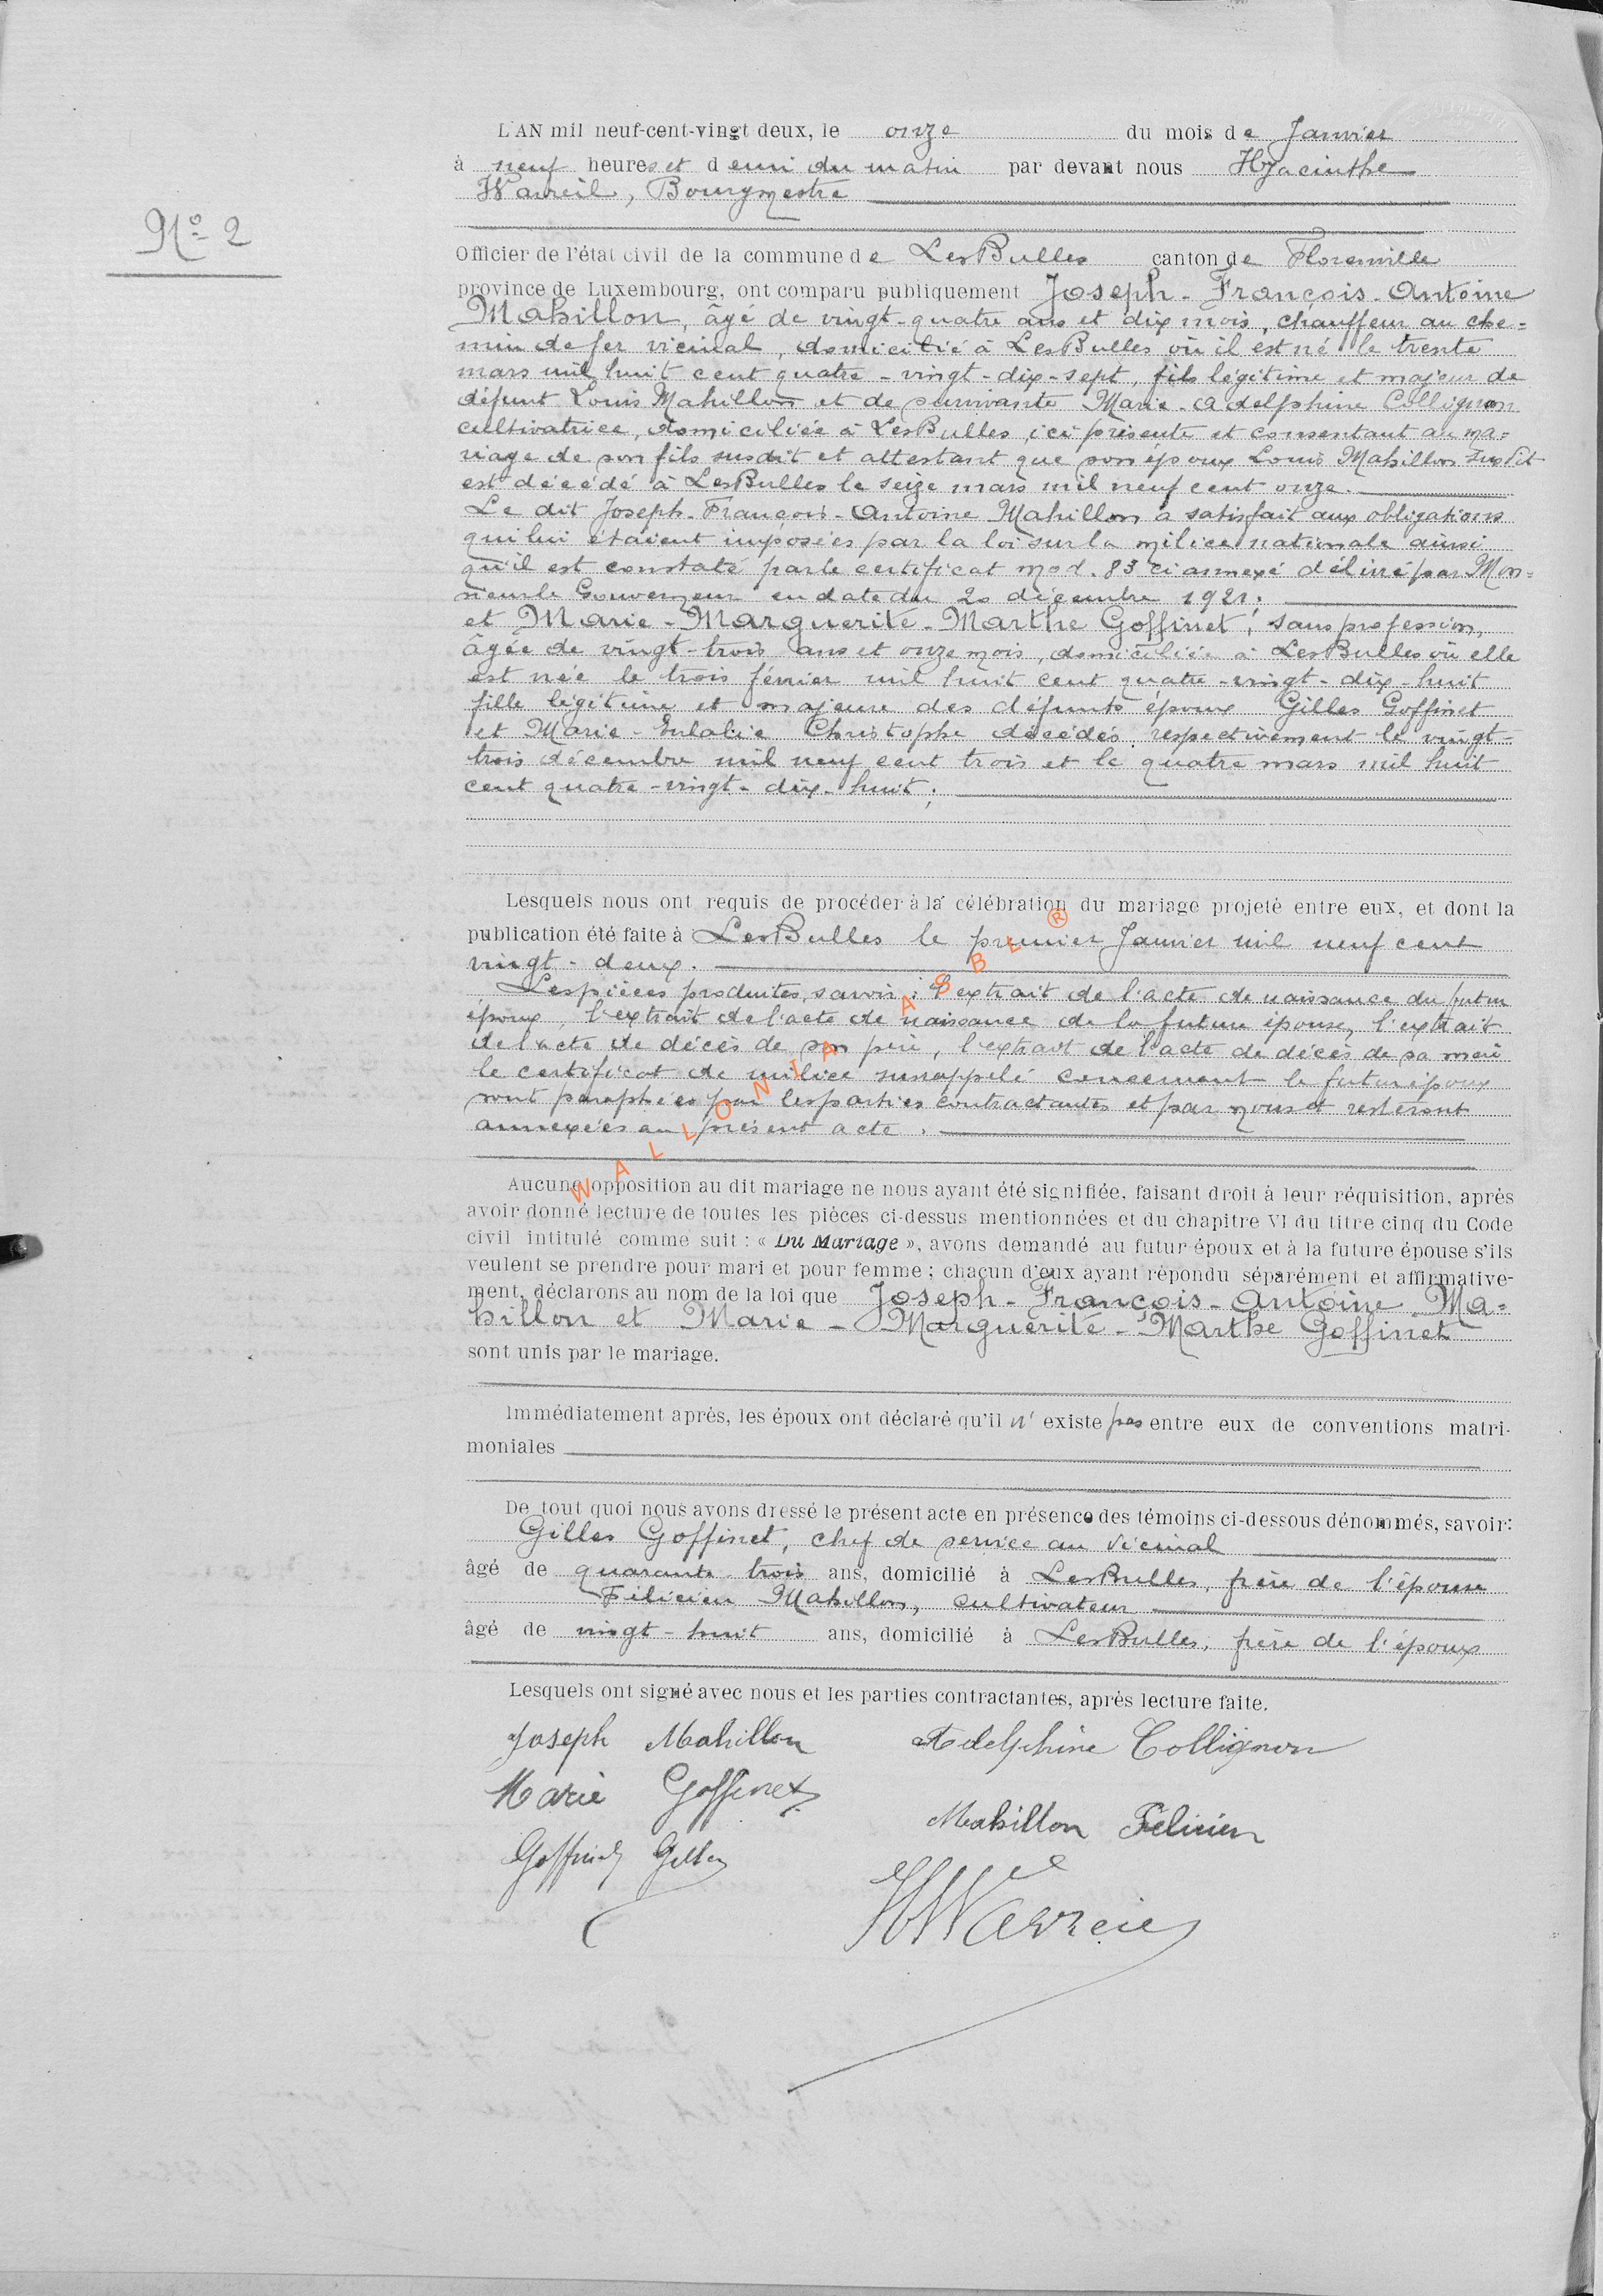 L'AN mil neuf-cent-vingt deux, le onze du mois de Janvier
à neuf heures et demi du matin par devant nous Hyacinthe
Wavreil, Bourgmestre
N° 2
Officier de l'état civil de la commune de LesBulles canton de Florenville
province de Luxembourg, ont comparu publiquement Joseph-François-Antoine
Mahillon, âgé de vingt-quatre ans et dix mois, chauffeur au che=
min de fer vicinal, domicilié à LesBulles où il est né le trente
mars mil huit cent quatre-vingt-dix-sept, fils légitime et majeur de
défunt Louis Mahillon et de survivante Marie-Adelphine Collignon
cultivatrice, domiciliée à LesBulles ici présente et consentant au ma=
riage de son fils susdit et attestant que son époux Louis Mahillon susdit
est décédé à LesBulles le seize mars mil neuf cent onze.
Le dit Joseph-François-Antoine Mahillon a satisfait aux obligations
qui lui étaient imposées par la loi sur la milice nationale ainsi
qu'il est constaté par le certificat mod. 83 ci annexé délivré par Mon=
sieur le Gouverneur en date du 20 décembre 1921;
et Marie-Marguerite-Marthe Goffinet, sans profession,
âgée de vingt-trois ans et onze mois, domiciliée à LesBulles où elle
est née le trois février mil huit cent quatre-vingt-dix-huit
fille légitime et majeure des défunts époux Gilles Goffinet
et Marie-Eulalie Christophe décédés respectivement le vingt-
trois décembre mil neuf cent trois et le quatre mars mil huit
cent quatre-vingt-dix-huit;
Lesquels nous ont requis de procéder à la célébration du mariage projeté entre eux, et dont la
publication été faite à LesBulles le premier Janvier mil neuf cent
vingt-deux.
Les pièces produites, savoir: l'extrait de l'acte de naissance du futur
époux, l'extrait de l'acte de naissance de la future épouse, l'extrait
de l'acte de décès de son père, l'extrait de l'acte de décès de sa mère
le certificat de milice susrappelé concernant le futur époux
sont paraphées par les parties contractantes et par nous et resteront
annexées au présent acte.
WALLONIA ASBL ®
Aucune opposition au dit mariage ne nous ayant été signifiée, faisant droit à leur réquisition, après
avoir donné lecture de toutes les pièces ci-dessus mentionnées et du chapitre VI du titre cinq du Code
civil intitulé comme suit : « Du Mariage », avons demandé au futur époux et à la future épouse s'ils
veulent se prendre pour mari et pour femme ; chacun d'eux ayant répondu séparément et affirmative-
ment, déclarons au nom de la loi que Joseph-François-Antoine Ma=
hillon et Marie-Marguerite-Marthe Goffinet
sont unis par le mariage.
Immédiatement après, les époux ont déclaré qu'il n'existe pas entre eux de conventions matri-
moniales
De tout quoi nous avons dressé le présent acte en présence des témoins ci-dessous dénommés, savoir:
Gilles Goffinet, chef de service au Vicinal
âgé de quarante trois ans, domicilié à LesBulles, frère de l'épouse
Félicien Mahillon, cultivateur
âgé de vingt-huit ans, domicilié à LesBulles, frère de l'époux
Lesquels ont signé avec nous et les parties contractantes, après lecture faite.
Joseph Mahillon Adelphine Collignon
Marie Goffinet
Mahillon Félicien
Goffinet Gilles
H Wavreil